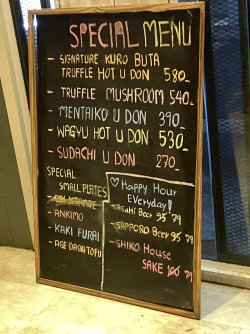 SPECIAL MENU
- SIGNATURE KURO BUTA
TRUFFLE HOT UDON 580-
- TRUFFLE MUSHROOM 540-
- MENTAIKO UDON 390-
- WAGYU HOT UDON 530-
- SUDACHI UDON 270-
SPECIAL
SMALL PLATES
- ANKIMO
- KAKI FURAI
- AGE DASHI TOFU
Happy Hour
EVeryday!
- ASAHI Beer 95 79
- SAPPORO Beer 95 79
- SHIKO House
SAKE 100 79